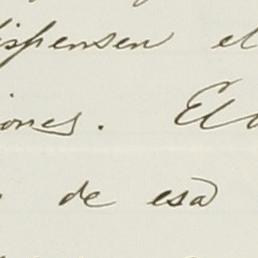 dispensen el
iones. El
de esa